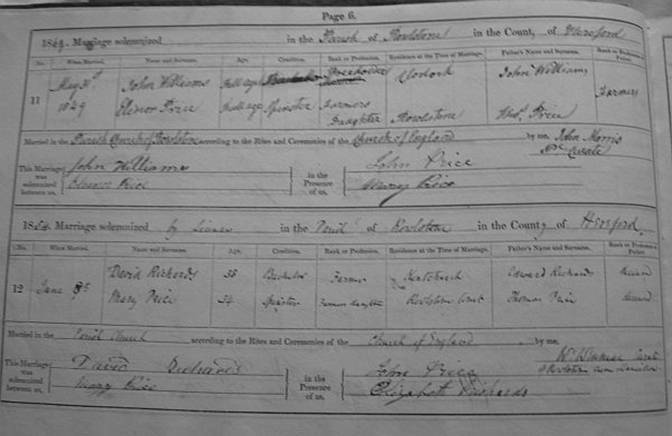 Page 6.
1849. Marriage solemnized in the Parish of Rowlstone in the County of Hereford
No. When Married. Name and Surname. Age. Condition. Rank or Profession. Residence at the Time of Marriage. Father's Name and Surname. Rank or Profession of Father.
11 May 31st 1849 John Williams Full age Clodock John Williams Farmer
Elinor Price Full age Spinster Farmers Daughter Rowlstone Thos. Price
Married in the Parish Church of Rowlstone according to the Rites and Ceremonies of the Church of England by me, John Morris
Curate
This Marriage was solemnized between us, John Williams in the Presence of us, John Price
Price Mary Price
Marriage solemnized by in the of Rowlstone in the County of Hereford
No. When Married. Name and Surname. Age. Condition. Rank or Profession. Residence at the Time of Marriage. Father's Name and Surname. Rank or Profession of Father.
12 June David Richards 38 Bachelor Farmer Kentchurch Edward Richards
Mary Price 34 Spinster Farmers daughter Rowlstone Thomas Price
Married in the Parish Church according to the Rites and Ceremonies of the Church of England by me,
This Marriage was solemnized between us, David Richards in the Presence of us, John Price
Mary Price Elizabeth Richards